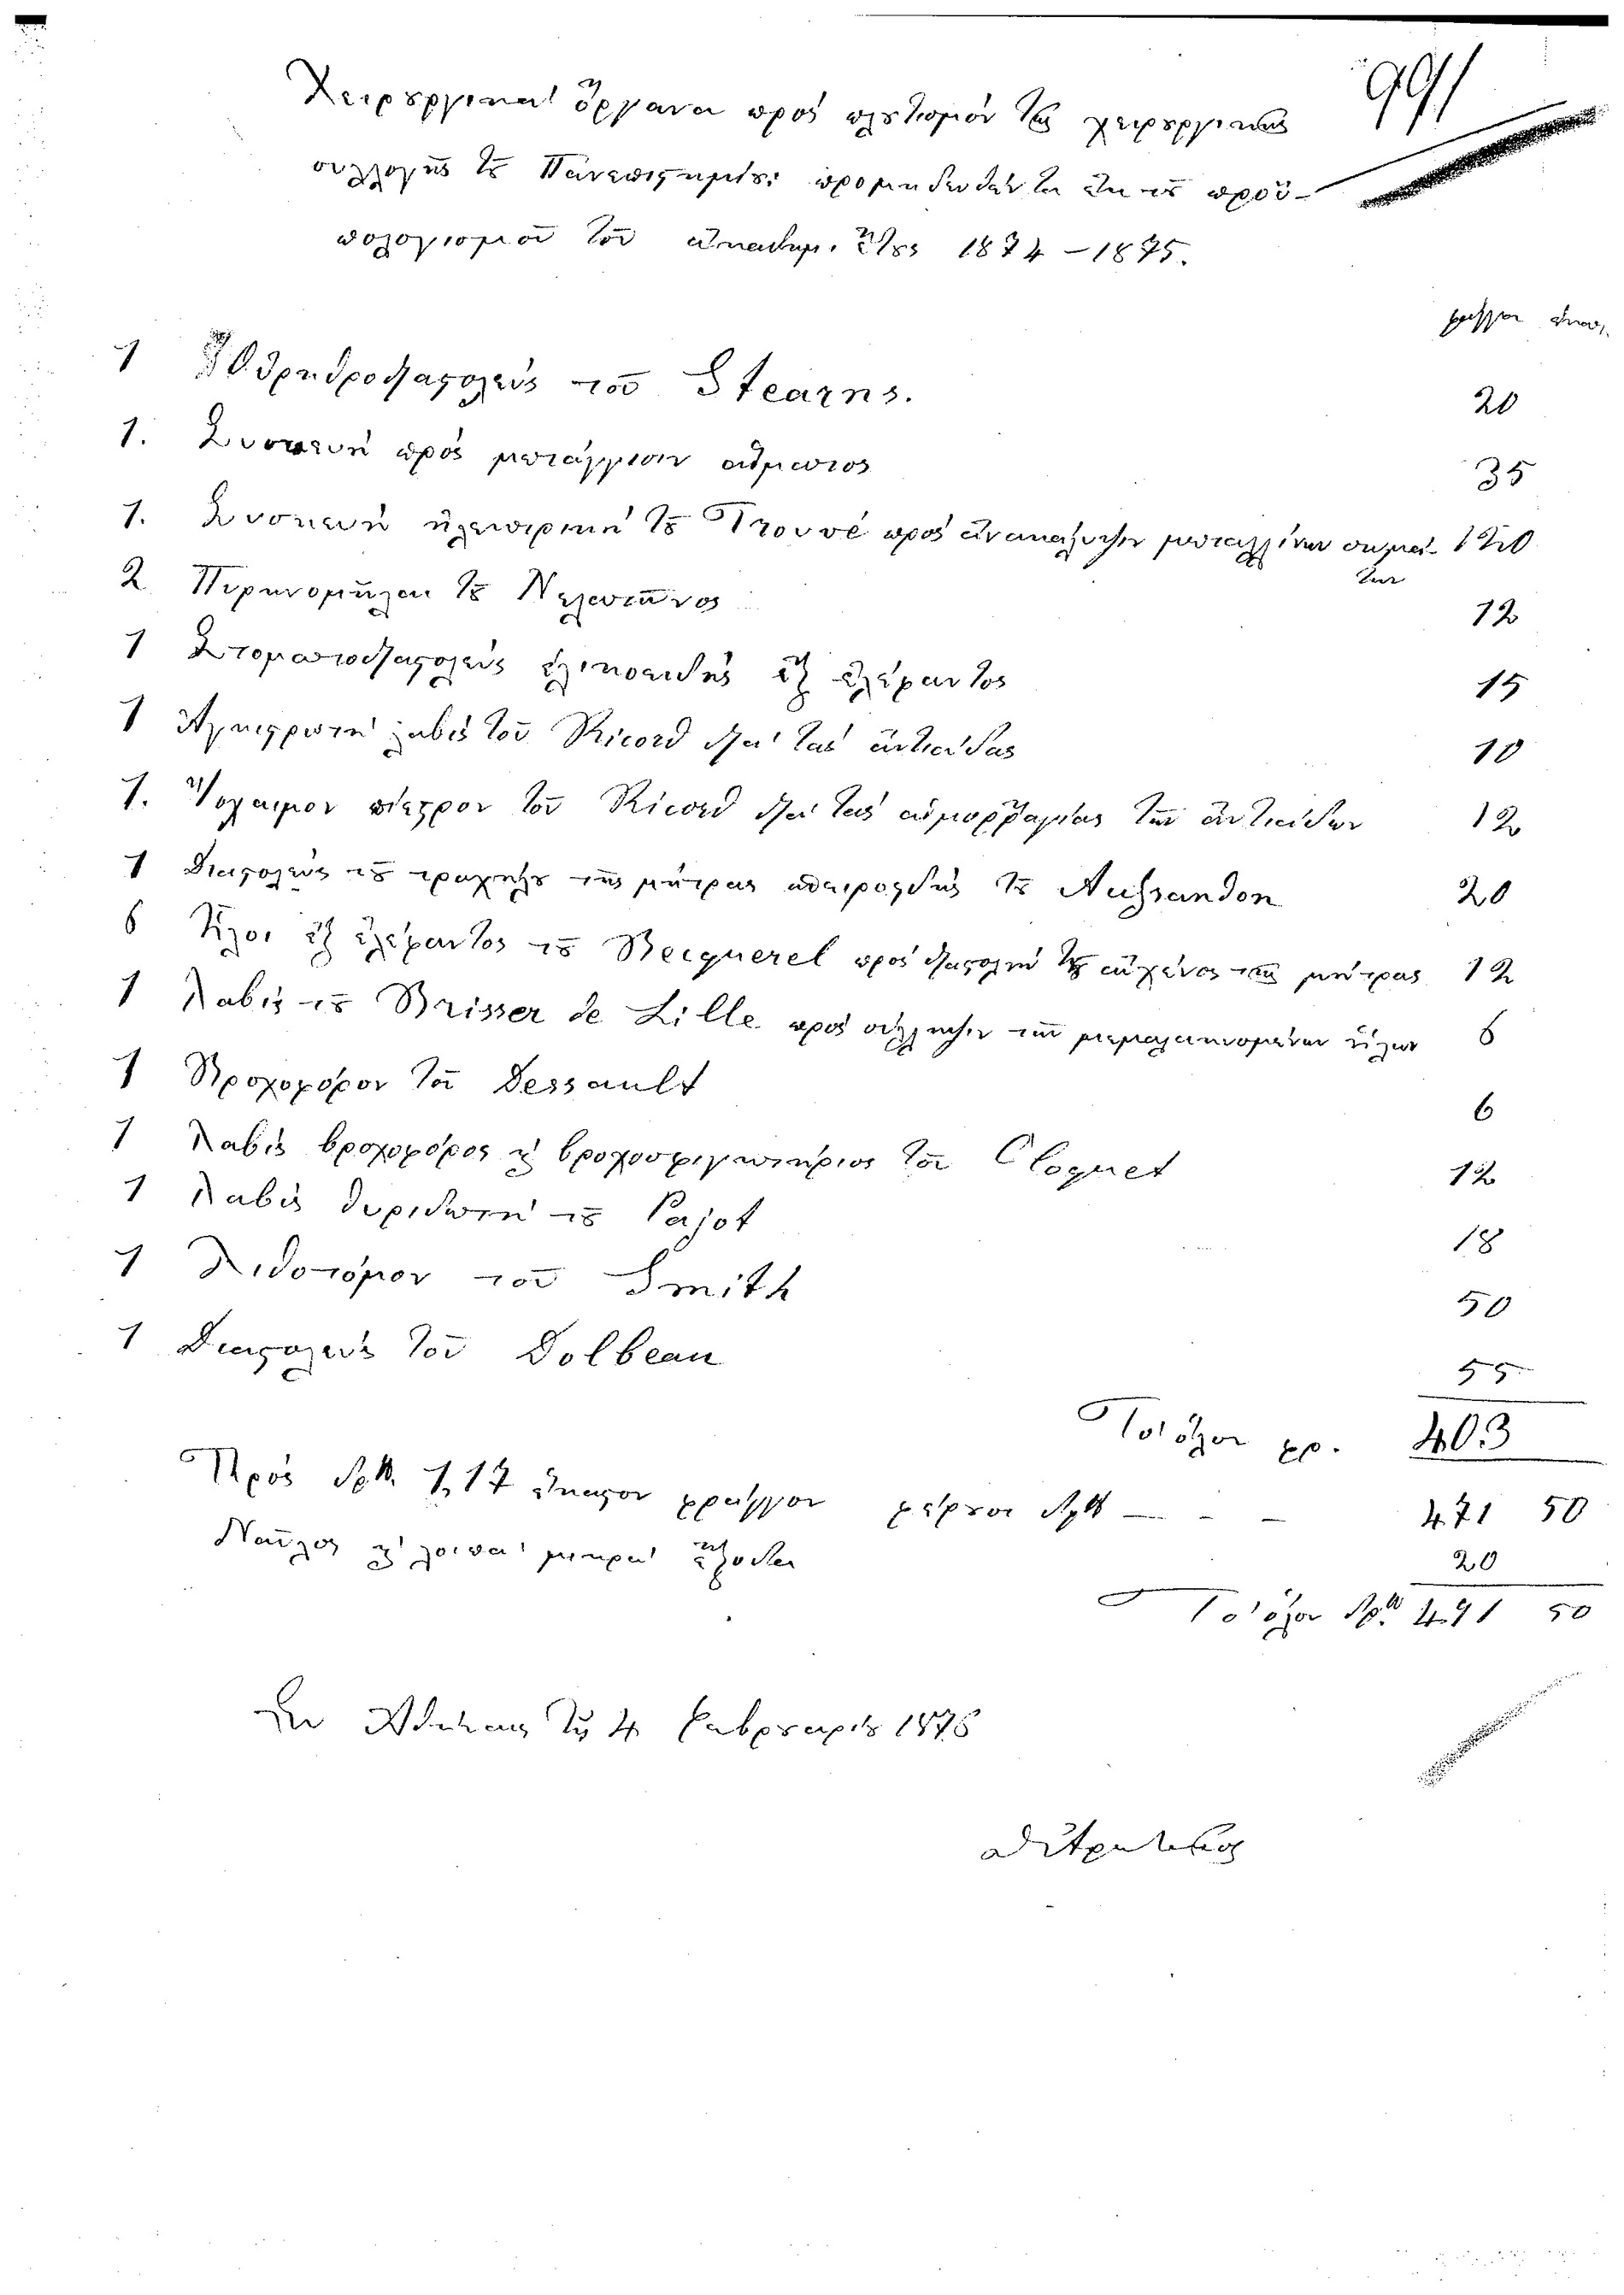 991
Χειρουργικὰ ὄργανα πρὸς πλουτισμὸν τῆς χειρουργικῆς
συλλογῆς τοῦ Πανεπιστημίου προμηθευθέντα ἐκ τοῦ προϋ-
πολογισμοῦ τοῦ ἀκαδημ. ἔτους 1874 – 1875.
φράγκα ἑκατ.
1 Οὐρηθροδιαστολεὺς τοῦ Stearns. 20
1. Συσκευὴ πρὸς μετάγγισιν αἵματος 35
1. Συσκευὴ ἠλεκτρικὴ τοῦ Τρουvé πρὸς ἀνακάλυψιν μεταλλίνων σωμά- 120
των
2 Πυρηνομῆλαι τοῦ Νελατῶνος 12
1 Στοματοδιαστολεὺς ἑλικοειδὴς ἐξ ἐλέφαντος 15
1 Ἀγκιστρωτὴ λαβὶς τοῦ Ricord διὰ τὰς ἀντιάδας 10
1. τοῦ Ricord διὰ τὰς αἱμοῤῥαγίας τῶν ἀντιάδων 12
1 Διαστολεὺς τοῦ τραχήλου τῆς μήτρας τοῦ Aussandon 20
6 Ἧλοι ἐξ ἐλέφαντος τοῦ Becquerel πρὸς διαστολὴν τοῦ αὐχένος τῆς μήτρας 12
1 Λαβὶς τοῦ Brisser de Lille πρὸς σύλληψιν τῶν 6
1 Βροχοφόρον τοῦ Dessault 6
1 Λαβὶς βροχοφόρος καὶ βροχοσφιγκτήριος τοῦ Cloquet 12
1 Λαβὶς θυριδωτὴ τοῦ Pajot 18
1 Λιθοτόμον τοῦ Smith 50
1 Διαστολεὺς τοῦ Dolbeau 55
Τὸ ὅλον φρ. 403
Πρὸς δρχ. 1,17 ἕκαστον φράγκον φέρουσι δρχ — - – 471 50
Ναῦλος καὶ λοιπὰ μικρὰ ἔξοδα 20
Τὸ ὅλον δρχ. 491 50
Ἐν Ἀθήναις τῇ 4 Φεβρουαρίου 1876